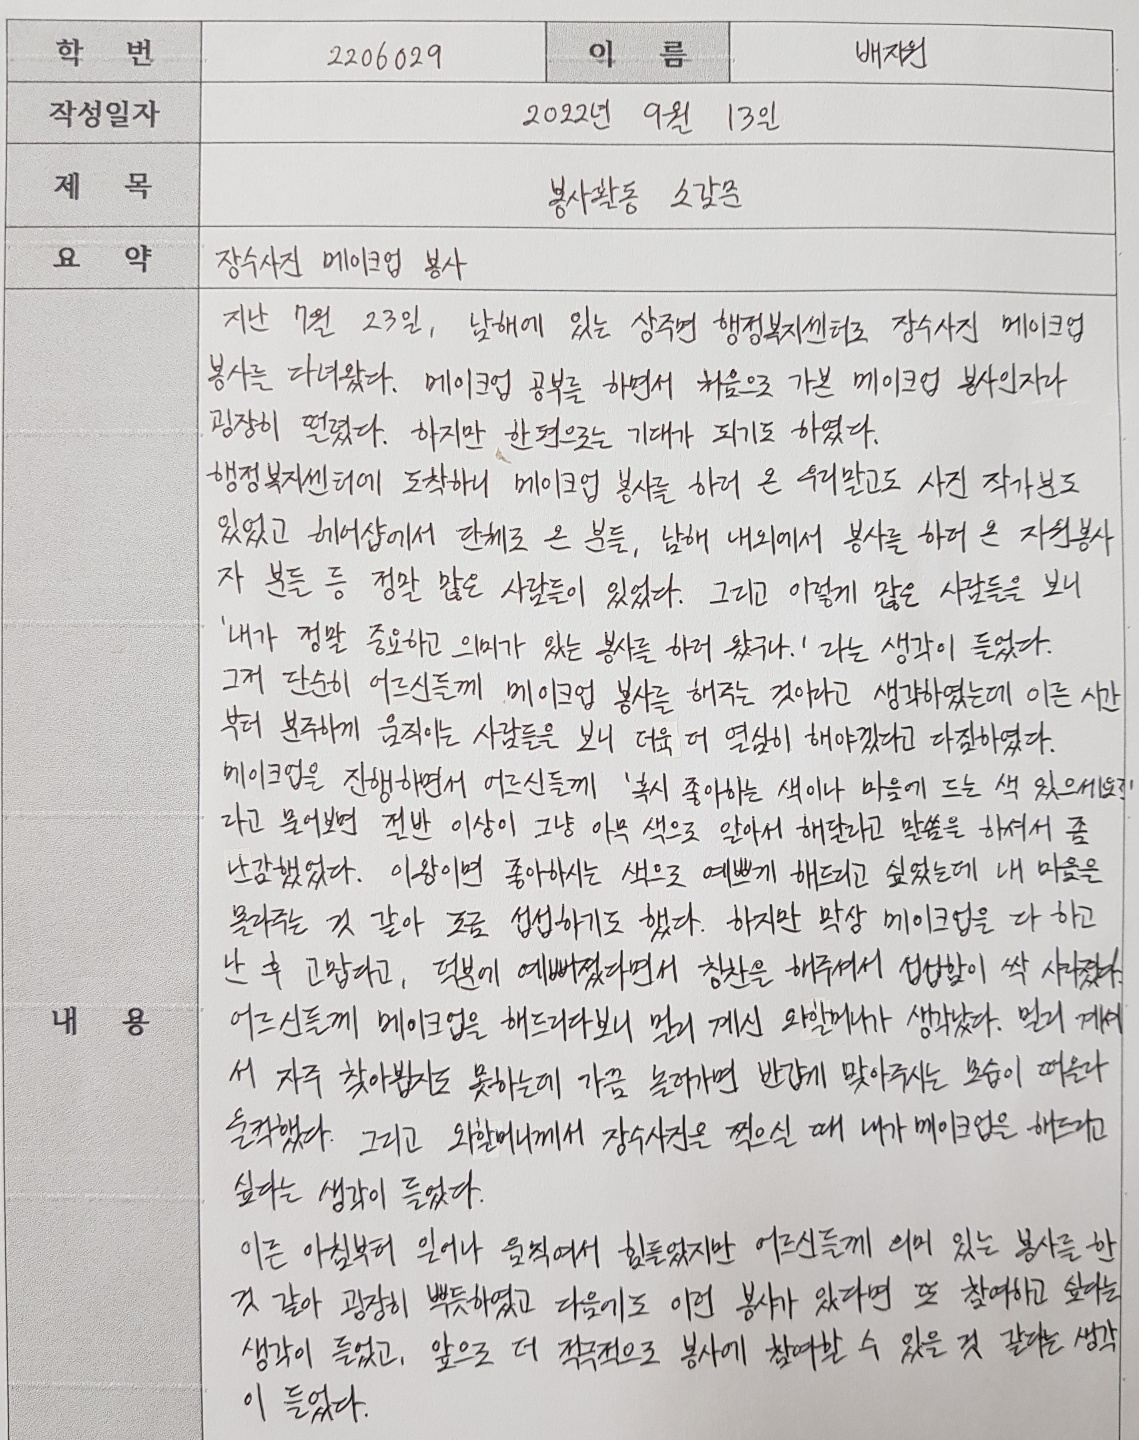 학 번 2206029 이 름 배자원
작성일자 2022년 9월 13일
제 목 봉사활동 소감문
요 약 장수사진 메이크업 봉사
지난 7월 23일, 남해에 있는 상주면 행정복지센터로 장수사진 메이크업
봉사를 다녀왔다. 메이크업 공부를 하면서 처음으로 가본 메이크업 봉사인지라
굉장히 떨렸다. 하지만 한편으로는 기대가 되기도 하였다.
행정복지센터에 도착하니 메이크업 봉사를 하러 온 우리말고도 사진 작가분도
있었고 헤어샵에서 단체로 온 분들, 남해 내외에서 봉사를 하러 온 자원봉사
자 분들 등 정말 많은 사람들이 있었다. 그리고 이렇게 많은 사람들을 보니
'내가 정말 중요하고 의미가 있는 봉사를 하러 왔구나.' 라는 생각이 들었다.
그저 단순히 어르신들께 메이크업 봉사를 해주는 것이라고 생각하였는데 이른 시간
부터 분주하게 움직이는 사람들을 보니 더욱 더 열심히 해야겠다고 다짐하였다.
메이크업을 진행하면서 어르신들께 '혹시 좋아하는 색이나 마음에 드는 색 있으세요?'
라고 물어보면 절반 이상이 그냥 아무 색으로 알아서 해달라고 말씀을 하셔서 좀
난감했었다. 이왕이면 좋아하시는 색으로 예쁘게 해드리고 싶었는데 내 마음을
몰라주는 것 같아 조금 섭섭하기도 했다. 하지만 막상 메이크업을 다 하고
난 후 고맙다고, 덕분에 예뻐졌다면서 칭찬을 해주셔서 섭섭함이 싹 사라졌다.
어르신들께 메이크업을 해드리다보니 멀리 계신 외할머니가 생각났다. 멀리 계셔
서 자주 찾아뵙지도 못하는데 가끔 놀러가면 반갑게 맞아주시는 모습이 떠올라
울컥했다. 그리고 외할머니께서 장수사진을 찍으실 때 내가 메이크업을 해드리고
싶다는 생각이 들었다.
내 용
이른 아침부터 일어나 움직여서 힘들었지만 어르신들께 의미 있는 봉사를 한
것 같아 굉장히 뿌듯하였고 다음에도 이런 봉사가 있다면 또 참여하고 싶다는
생각이 들었고, 앞으로 더 적극적으로 봉사에 참여할 수 있을 것 같다는 생각
이 들었다.